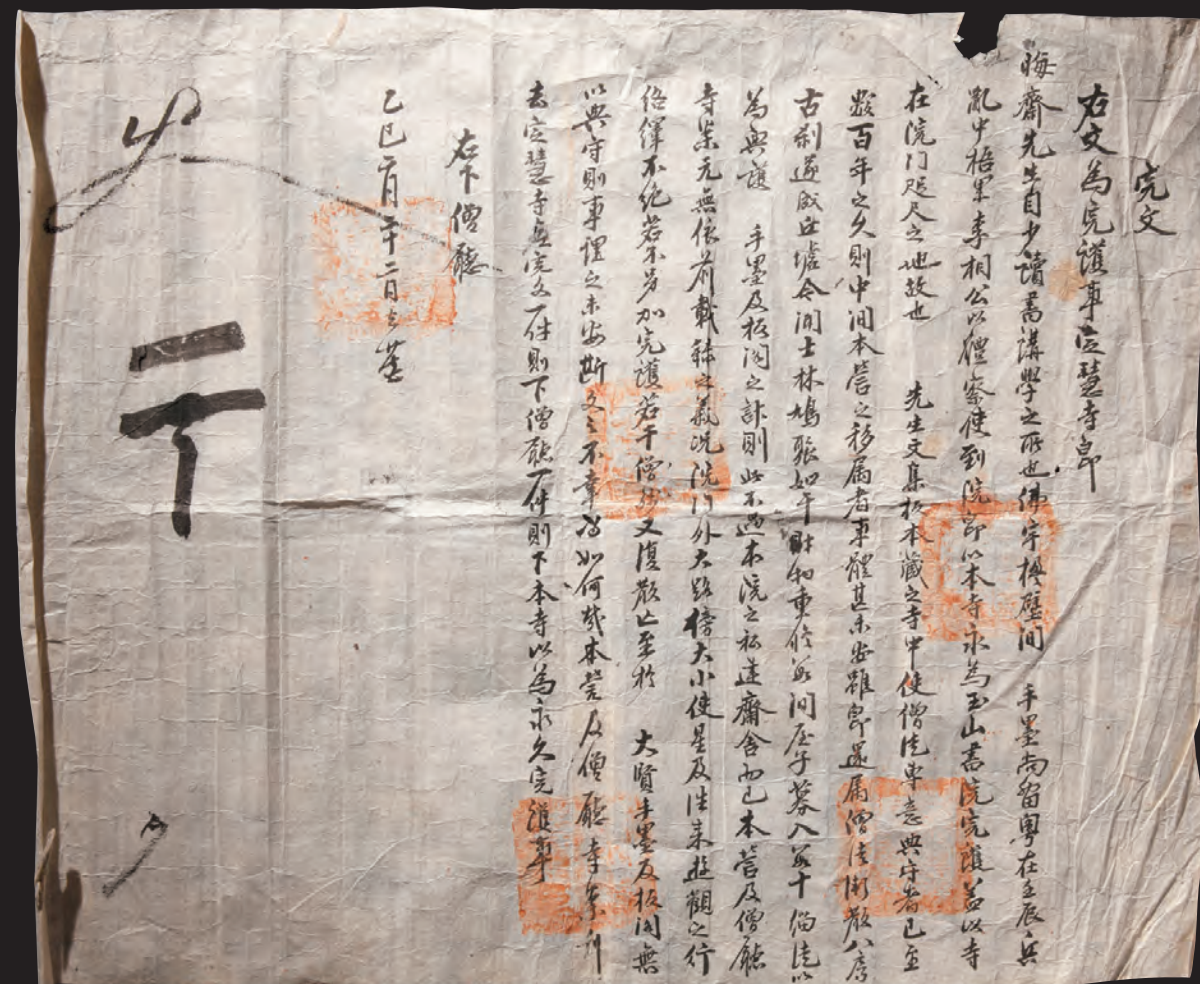 完文
右文爲完護事定慧寺卽
晦齋先生自少讀書講學之所也佛宇樑壁間 手墨尚留粤在壬辰兵
亂中梧里李相公以體察使到院卽以本寺永爲玉山書院完護盖以寺
在院門咫尺之地故也 先生文集板本藏之寺中使僧徒專意典守者已至
數百年之久則中間本營之移屬者事體甚未安雖卽還屬僧徒漸散八房
古刹遂成丘墟今聞士林鳩聚如干財物重修數間屋子募入數十僧徒以
爲典護 手墨及板閣之計則此不過本院之私建齋舍而已本營及僧廳
寺案元無依前載錄之義況院門外大路傍大小使星及往來遊觀之行
絡繹不絶若不另加完護若干僧徒又復散亡至於 大賢手墨及板閣無
以典守則事理之未安斯文之不幸爲如何哉本營及僧廳寺案
去定慧寺是完文一件則下僧廳一件則下本寺以爲永久完護事
右下僧廳
乙巳二月二十二日